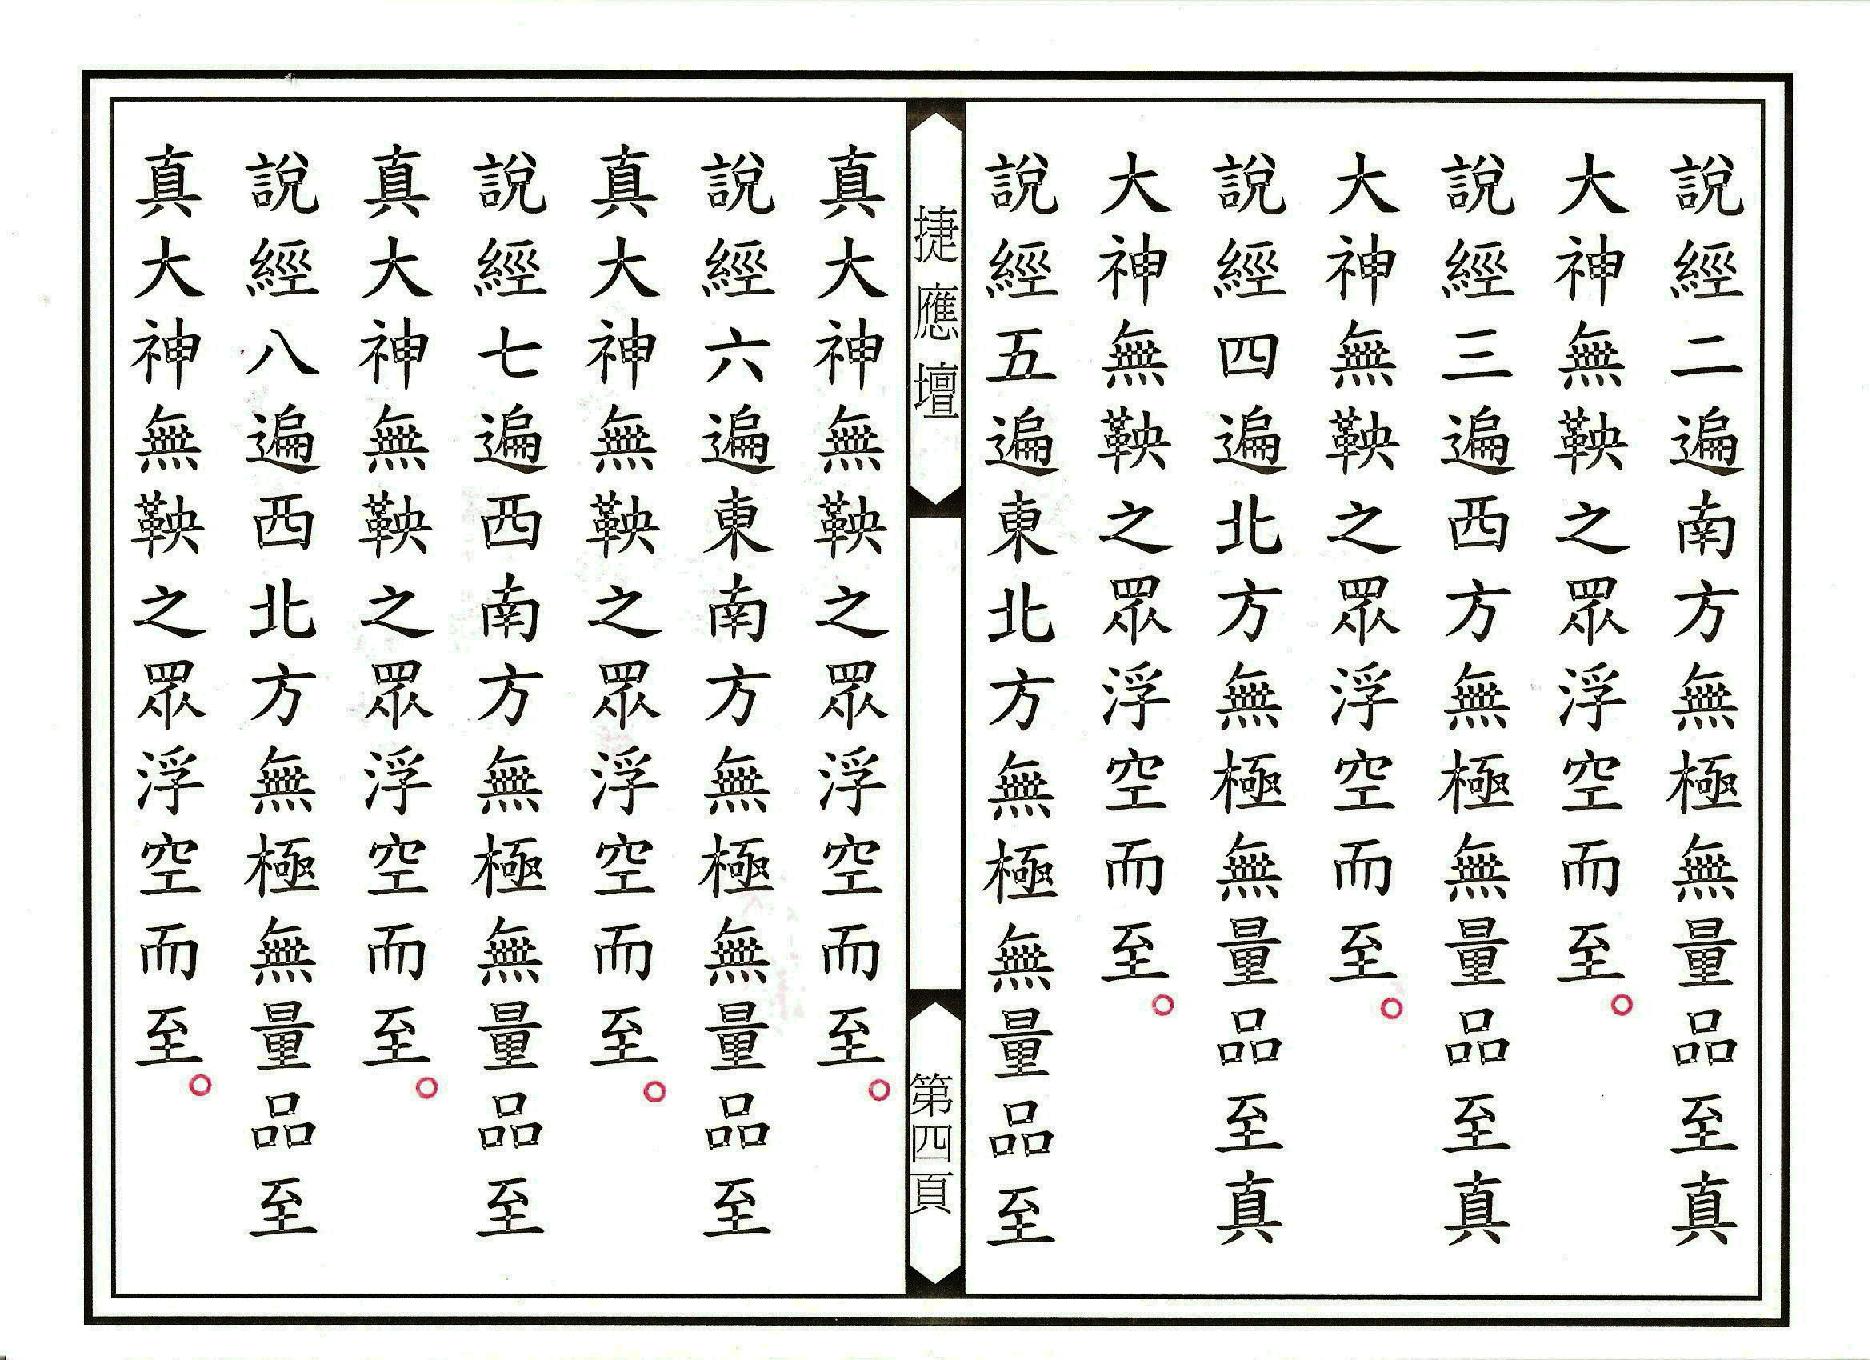 說經二遍南方無極無量品至真
大神無鞅之眾浮空而至。
說經三遍西方無極無量品至真
大神無鞅之眾浮空而至。
說經四遍北方無極無量品至真
大神無鞅之眾浮空而至。
說經五遍東北方無極無量品至
捷應壇
第四頁
真大神無鞅之眾浮空而至。
說經六遍東南方無極無量品至
真大神無鞅之眾浮空而至。
說經七遍西南方無極無量品至
真大神無鞅之眾浮空而至。
說經八遍西北方無極無量品至
真大神無鞅之眾浮空而至。